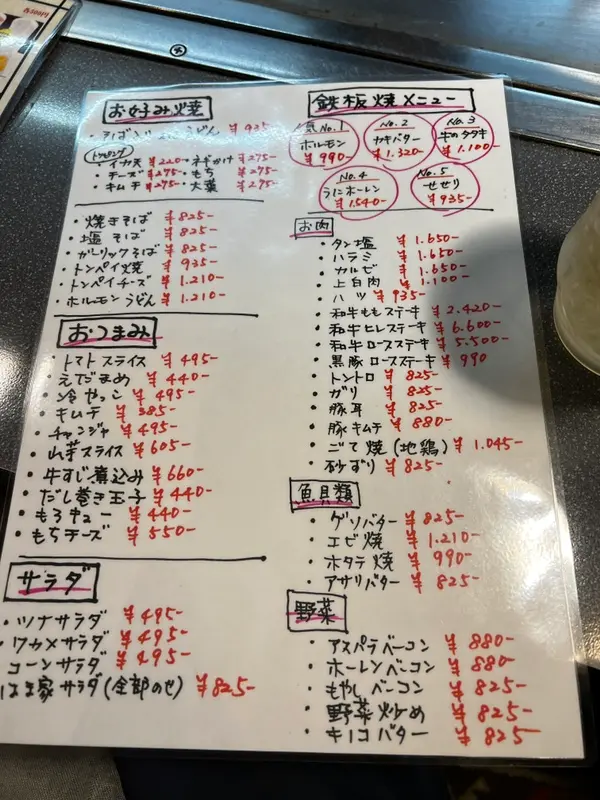 各500円
お好み焼
・そば入り うどん ¥925-
トッピング
・イカ天 ¥220- ・ネギかけ ¥275-
・チーズ ¥275- ・もち ¥275-
・キムチ ¥275- ・大葉 ¥275-
・焼きそば ¥825-
・塩そば ¥825-
・ガーリックそば ¥825-
・トンペイ焼 ¥935-
・トンペイチーズ ¥1.210-
・ホルモンうどん ¥1.210-
おつまみ
・トマトスライス ¥495-
・えだまめ ¥440-
・冷やっこ ¥495-
・キムチ ¥385-
・チャンジャ ¥495-
・山芋スライス ¥605-
・牛すじ煮込み ¥660-
・だし巻き玉子 ¥440-
・もろキュー ¥440-
・もちチーズ ¥550-
サラダ
・ツナサラダ ¥495-
・ワカメサラダ ¥495-
コーンサラダ ¥495-
はま家サラダ(全部のせ) ¥825-
鉄板焼メニュー
人気No.1 ホルモン ¥990-
No.2 カキバター ¥1.320-
No.3 牛のタタキ ¥1.100-
No.4 うにホーレン ¥1.540-
No.5 せせり ¥935-
お肉
・タン塩 ¥1.650-
・ハラミ ¥1.650-
・カルビ ¥1.650-
・上白肉 ¥1.100-
・ハツ ¥935-
・和牛ももステーキ ¥2.420-
・和牛ヒレステーキ ¥6.600-
・和牛ロースステーキ ¥5.500-
・黒豚ロースステーキ ¥990
・トントロ ¥825-
・ガリ ¥825-
・豚耳 ¥825-
・豚キムチ ¥880-
・ごて焼(地鶏) ¥1.045-
・砂ずり ¥825-
魚貝類
・ゲソバター ¥825-
・エビ焼 ¥1.210-
・ホタテ焼 ¥990-
・アサリバター ¥825-
野菜
・アスパラベーコン ¥880-
・ホーレンベーコン ¥880-
・もやしベーコン ¥825-
・野菜炒め ¥825-
・キノコバター ¥825-